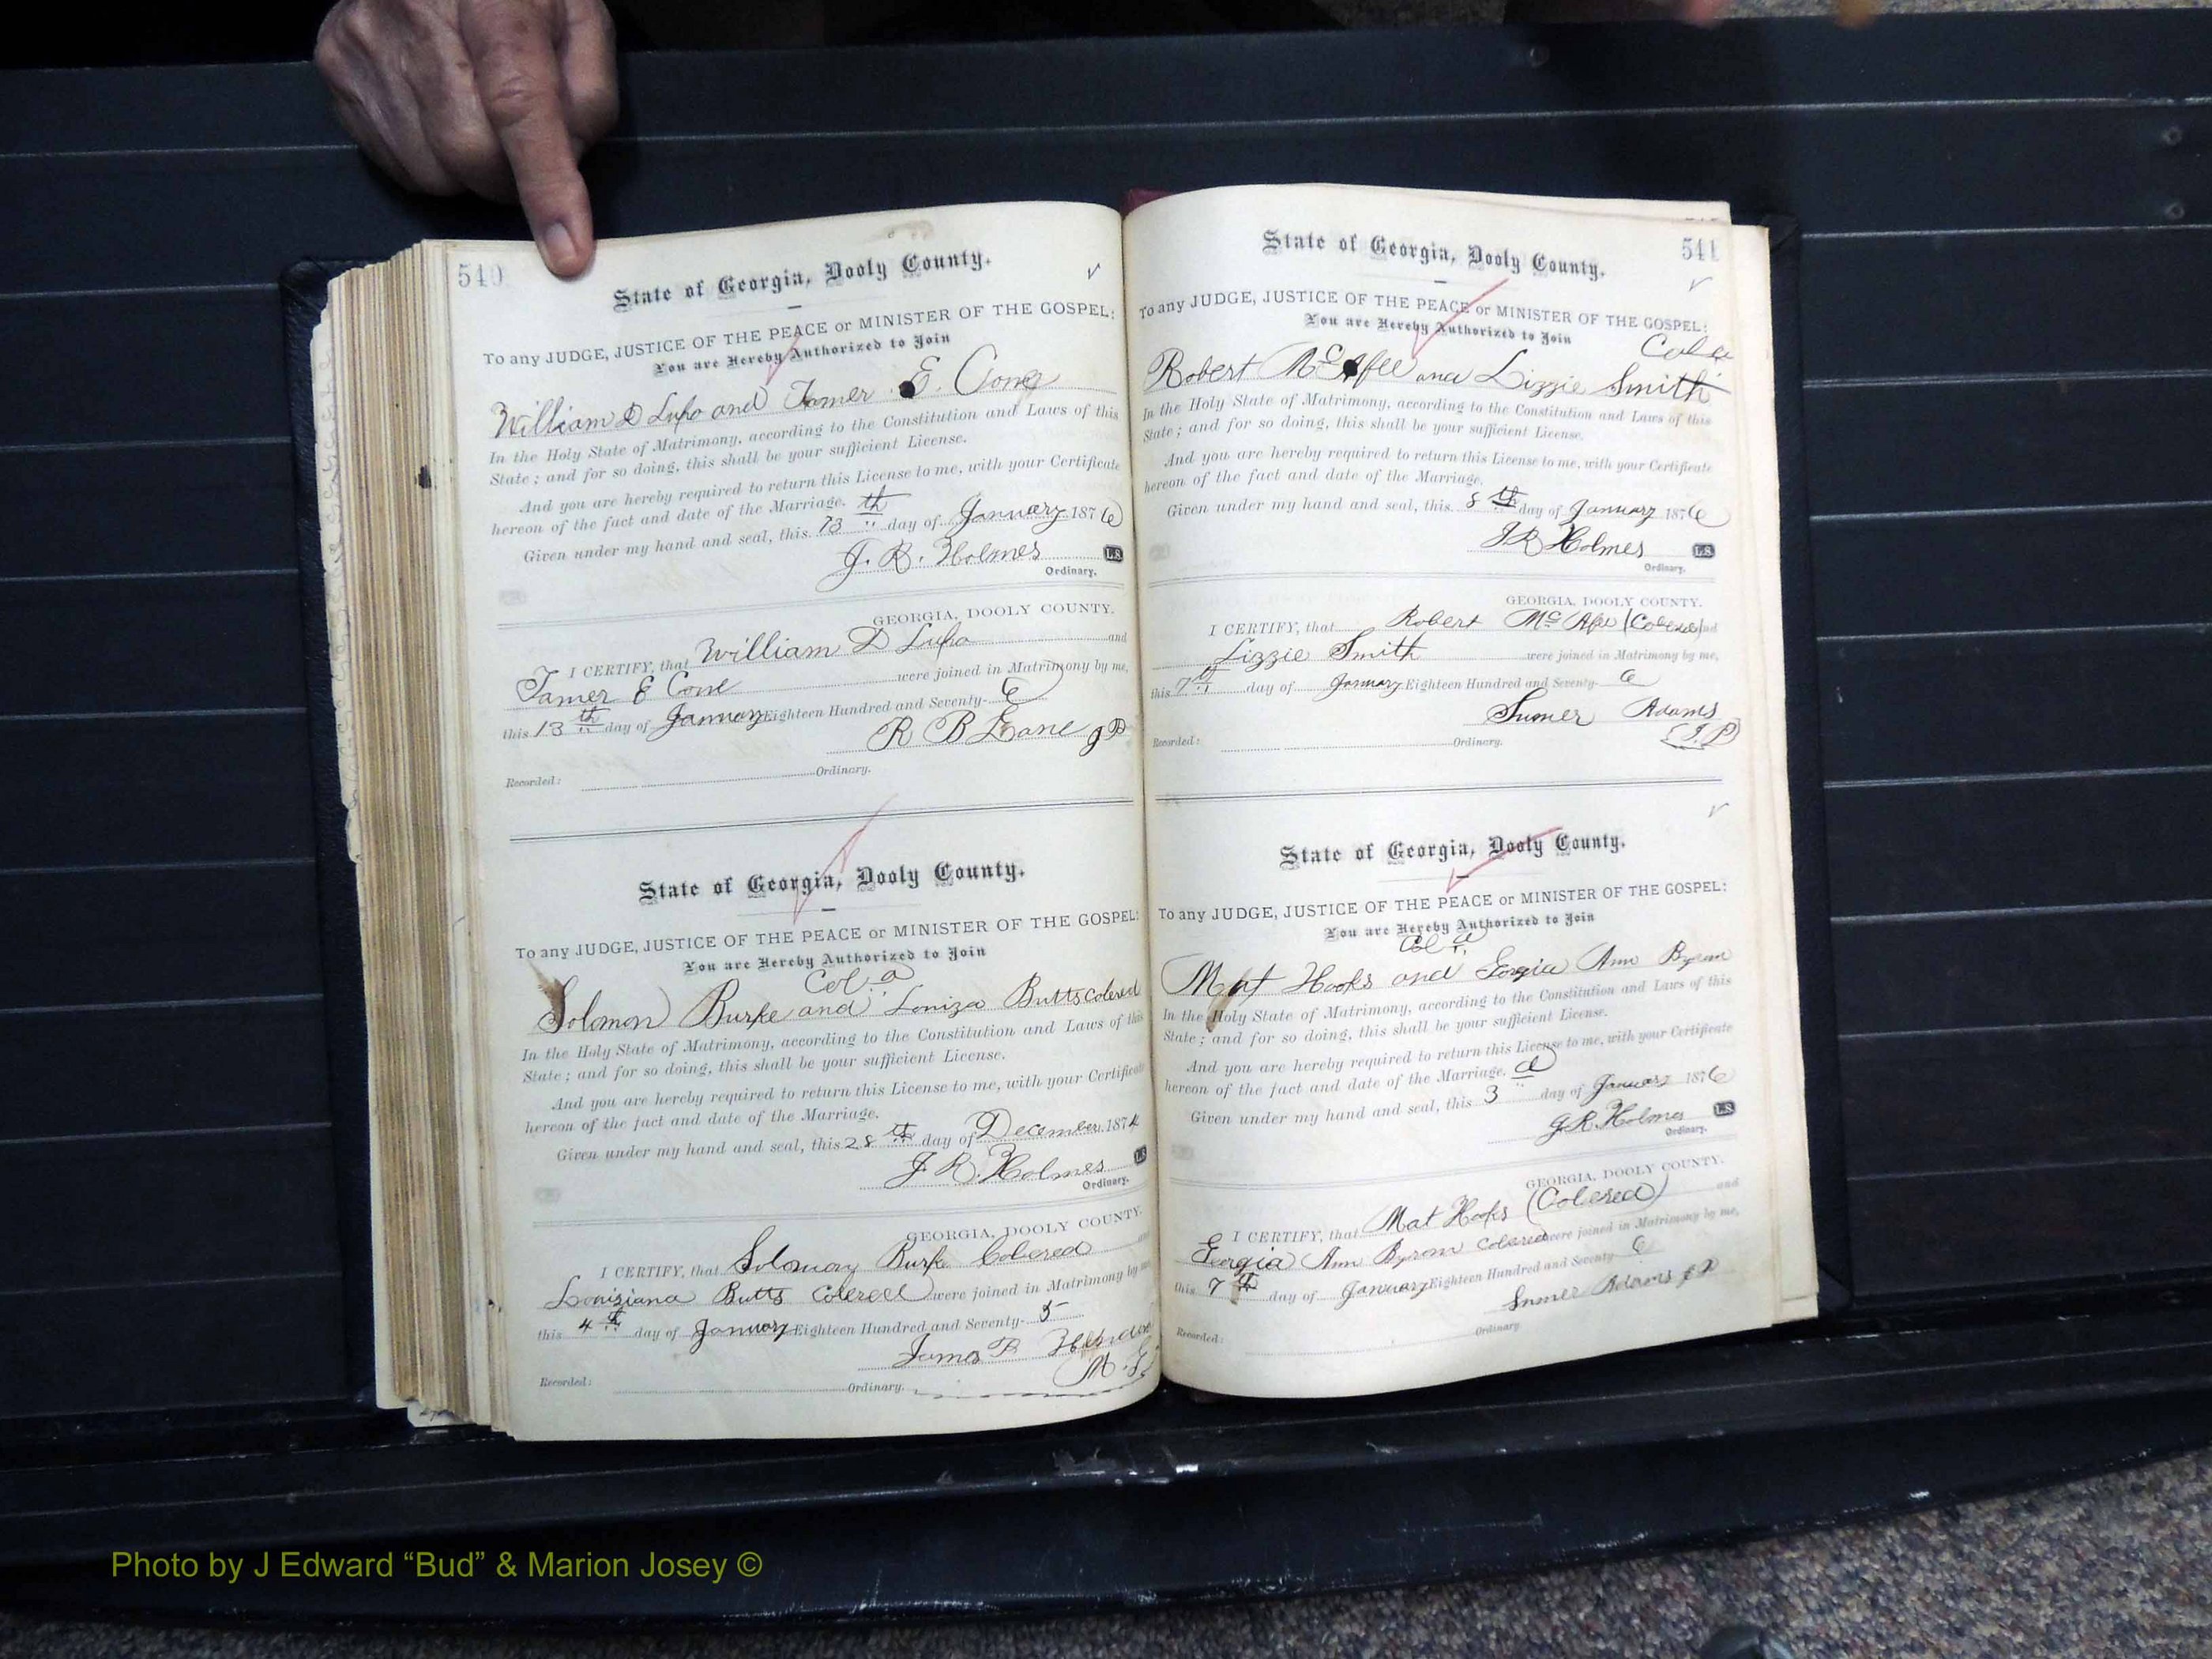 540
State of Georgia, Dooly County.
To any JUDGE, JUSTICE OF THE PEACE or MINISTER OF THE GOSPEL:
You are Hereby Authorized to Join
William D Lupo and Tamer E. Cone
In the Holy State of Matrimony, according to the Constitution and Laws of this
State; and for so doing, this shall be your sufficient License.
And you are hereby required to return this License to me, with your Certificate
hereon of the fact and date of the Marriage.
Given under my hand and seal, this 13th day of January 1876
J. R. Holmes L.S.
Ordinary.
GEORGIA, DOOLY COUNTY.
I CERTIFY, that William D Lupo and
Tamer E Cone were joined in Matrimony by me,
this 13th day of January Eighteen Hundred and Seventy-6
R B Lane JP
Recorded: Ordinary.
State of Georgia, Dooly County.
To any JUDGE, JUSTICE OF THE PEACE or MINISTER OF THE GOSPEL:
You are Hereby Authorized to Join
Col.d
Solomon Burke and Louiza Butts colered
In the Holy State of Matrimony, according to the Constitution and Laws of this
State; and for so doing, this shall be your sufficient License.
And you are hereby required to return this License to me, with your Certificate
hereon of the fact and date of the Marriage.
Given under my hand and seal, this 28th day of December 1874
J. R. Holmes L.S.
Ordinary.
GEORGIA, DOOLY COUNTY.
I CERTIFY, that Solomon Burke Colered
Louiziana Butts Colered were joined in Matrimony by
this 4th day of January Eighteen Hundred and Seventy-5
James B
M. G
Recorded: Ordinary.
541
State of Georgia, Dooly County.
To any JUDGE, JUSTICE OF THE PEACE or MINISTER OF THE GOSPEL:
You are Hereby Authorized to Join
Col d
Robert McAfee and Lizzie Smith
In the Holy State of Matrimony, according to the Constitution and Laws of this
State; and for so doing, this shall be your sufficient License.
And you are hereby required to return this License to me, with your Certificate
hereon of the fact and date of the Marriage.
Given under my hand and seal, this 8th day of January 1876
J R Holmes L.S.
Ordinary.
GEORGIA, DOOLY COUNTY.
I CERTIFY, that Robert McAfee (Colered) and
Lizzie Smith were joined in Matrimony by me,
this 7th day of January Eighteen Hundred and Seventy-6
Sumer Adams
(J. P)
Recorded: Ordinary.
State of Georgia, Dooly County.
To any JUDGE, JUSTICE OF THE PEACE or MINISTER OF THE GOSPEL:
You are Hereby Authorized to Join
Col d
Mat Hooks and Georgia Ann Byrom
In the Holy State of Matrimony, according to the Constitution and Laws of this
State; and for so doing, this shall be your sufficient License.
And you are hereby required to return this License to me, with your Certificate
hereon of the fact and date of the Marriage.
Given under my hand and seal, this 3d day of January 1876
J. R. Holmes L.S.
Ordinary.
GEORGIA, DOOLY COUNTY.
I CERTIFY, that Mat Hooks (Colered) and
Georgia Ann Byrom Colered were joined in Matrimony by me,
this 7th day of January Eighteen Hundred and Seventy-6
Sumer Adams J P
Recorded: Ordinary
Photo by J Edward “Bud” & Marion Josey ©